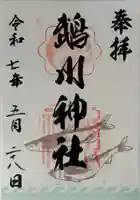 奉拝
鵜川神社
令和七年五月二八日